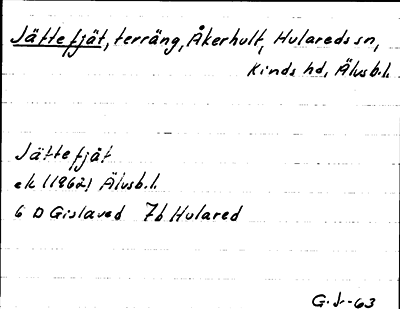 Jättefjät, terräng, Åkerhult, Hulareds sn,
Kinds hd, Älvsb.l.
Jättefjät
ek (1962) Älvsb.l.
6 D Gislaved 7b Hulared
G.J-63